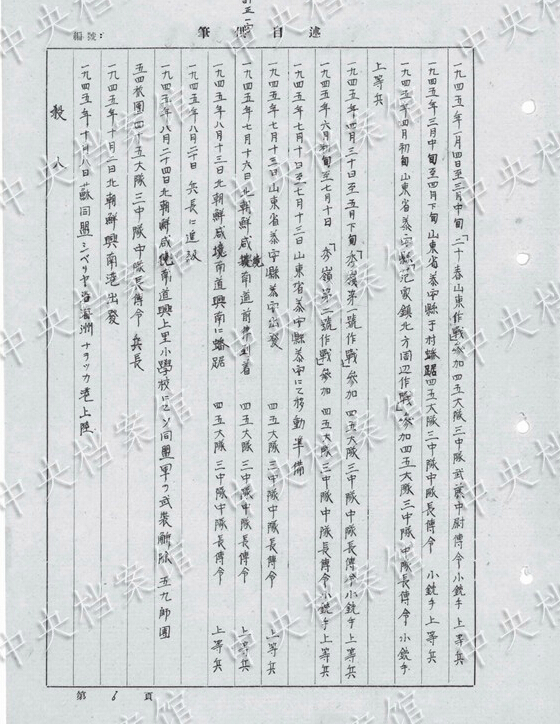 述自供筆
編號：
一九四五年一月四日至三月中旬「二十春山東作戰」參加 四五大隊三中隊武藤中尉傳令 小銃手 上等兵
一九四五年三月中旬至四月下旬山東省泰安縣于村蟠踞 四五大隊三中隊中隊長傳令 小銃手 上等兵
一九四五年四月初旬山東省泰安縣「范家鎮北方周辺作戰」參加 四五大隊三中隊中隊長傳令 小銃手
上等兵
一九四五年四月三十日至五月下旬「秀嶺第一號作戰」參加 四五大隊三中隊中隊長傳令 小銃手 上等兵
一九四五年六月初旬至七月十日「秀嶺第二號作戰」參加 四五大隊三中隊中隊長傳令 小銃手 上等兵
一九四五年七月十日至七月十三日山東省泰安縣泰安にて移動準備
一九四五年七月十三日山東省泰安縣泰安出發 四五大隊三中隊中隊長傳令 上等兵
一九四五年七月十六日北朝鮮咸鏡南道 到着 四五大隊三中隊中隊長傳令 上等兵
一九四五年八月十三日北朝鮮咸境南道興南に蟠踞 四五大隊三中隊中隊長傳令 上等兵
一九四五年八月二十日 兵長に進級
一九四五年八月二十四日北朝鮮咸境南道興上里小學校にてソ同盟軍の武装解除 五九師團
五四旅團四十五大隊三中隊中隊長傳令 兵長
一九四五年十月二日北朝鮮興南港出發
一九四五年十月八日蘇同盟シベリヤ沿海洲ナホッカ港上陸
殺人
第 6 頁
中央档案馆